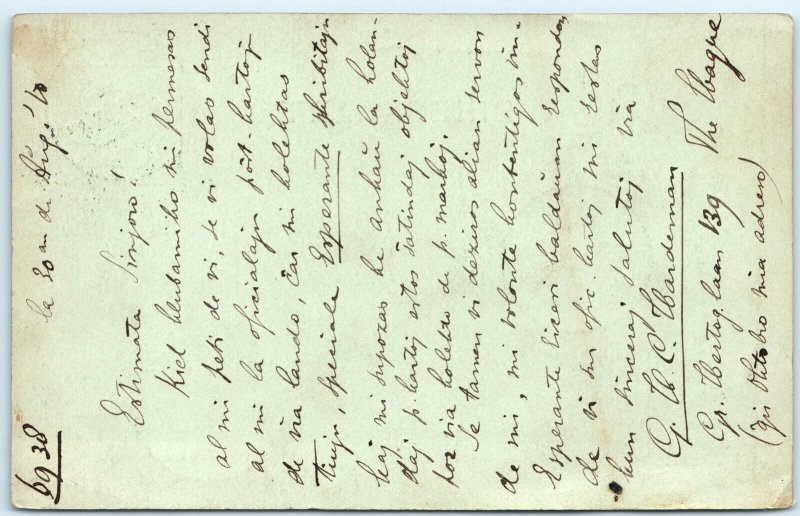 6938
la 30an de Aŭg. '10
Estimata Sinjoro!
Kiel klubamiko mi permesas
al mi peti de vi, se vi volas sendi
al mi la oficialajn pôŝt-kartojn
de via lando, ĉar mi kolektas
tiujn, speciale Esperante skribitajn
kaj mi supozas ke ankaŭ la holan-
daj p. kartoj estos ŝatindaj objektoj
por via kolekto de p. markoj.
Se tamen vi deziros alian servon
de mi, mi volonte kontentigos vin
Esperante vian baldaŭan respondon,
de vi sur ofic. kartoj mi restas
kun sinceraj salutoj via
G. H. C. Hardeman
Gr. Hertoglaan 139 The Hague
(ĝis Oktobro mia adreso)